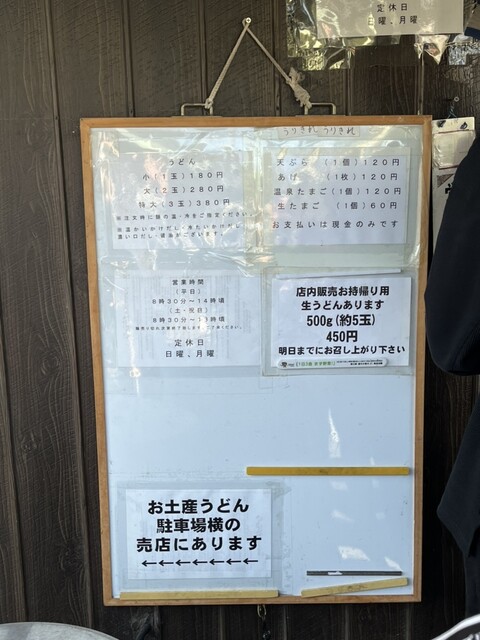 定休日
日曜．月曜
うりきれ うりきれ
うどん
小（１玉）１８０円
大（２玉）２８０円
特大（３玉）３８０円
天ぷら　（１個）１２０円
あげ　　（１枚）１２０円
温泉たまご（１個）１２０円
生たまご　（１個）６０円
お支払いは現金のみです
営業時間
（平日）
８時３０分～１４時頃
（土・祝日）
定休日
日曜．月曜
店内販売お持帰り用
生うどんあります
500g(約5玉)
450円
明日までにお召し上がり下さい
お土産うどん
駐車場横の
売店にあります
←←←←←←←